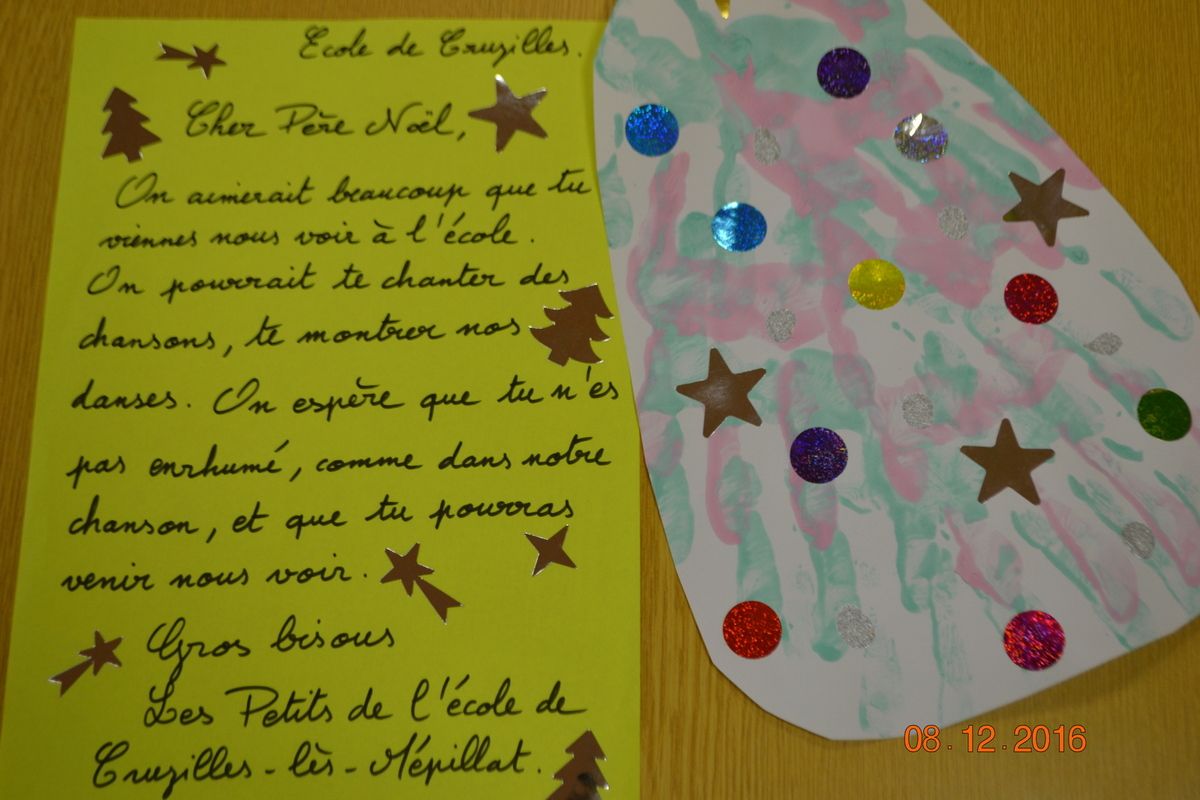 Ecole de Cruzilles.
Cher Père Noël,
On aimerait beaucoup que tu
viennes nous voir à l'école.
On pourrait te chanter des
chansons, te montrer nos
danses. On espère que tu n'es
pas enrhumé, comme dans notre
chanson, et que tu pourras
venir nous voir.
Gros bisous
Les Petits de l'école de
Cruzilles-lès-Mépillat.
08.12.2016